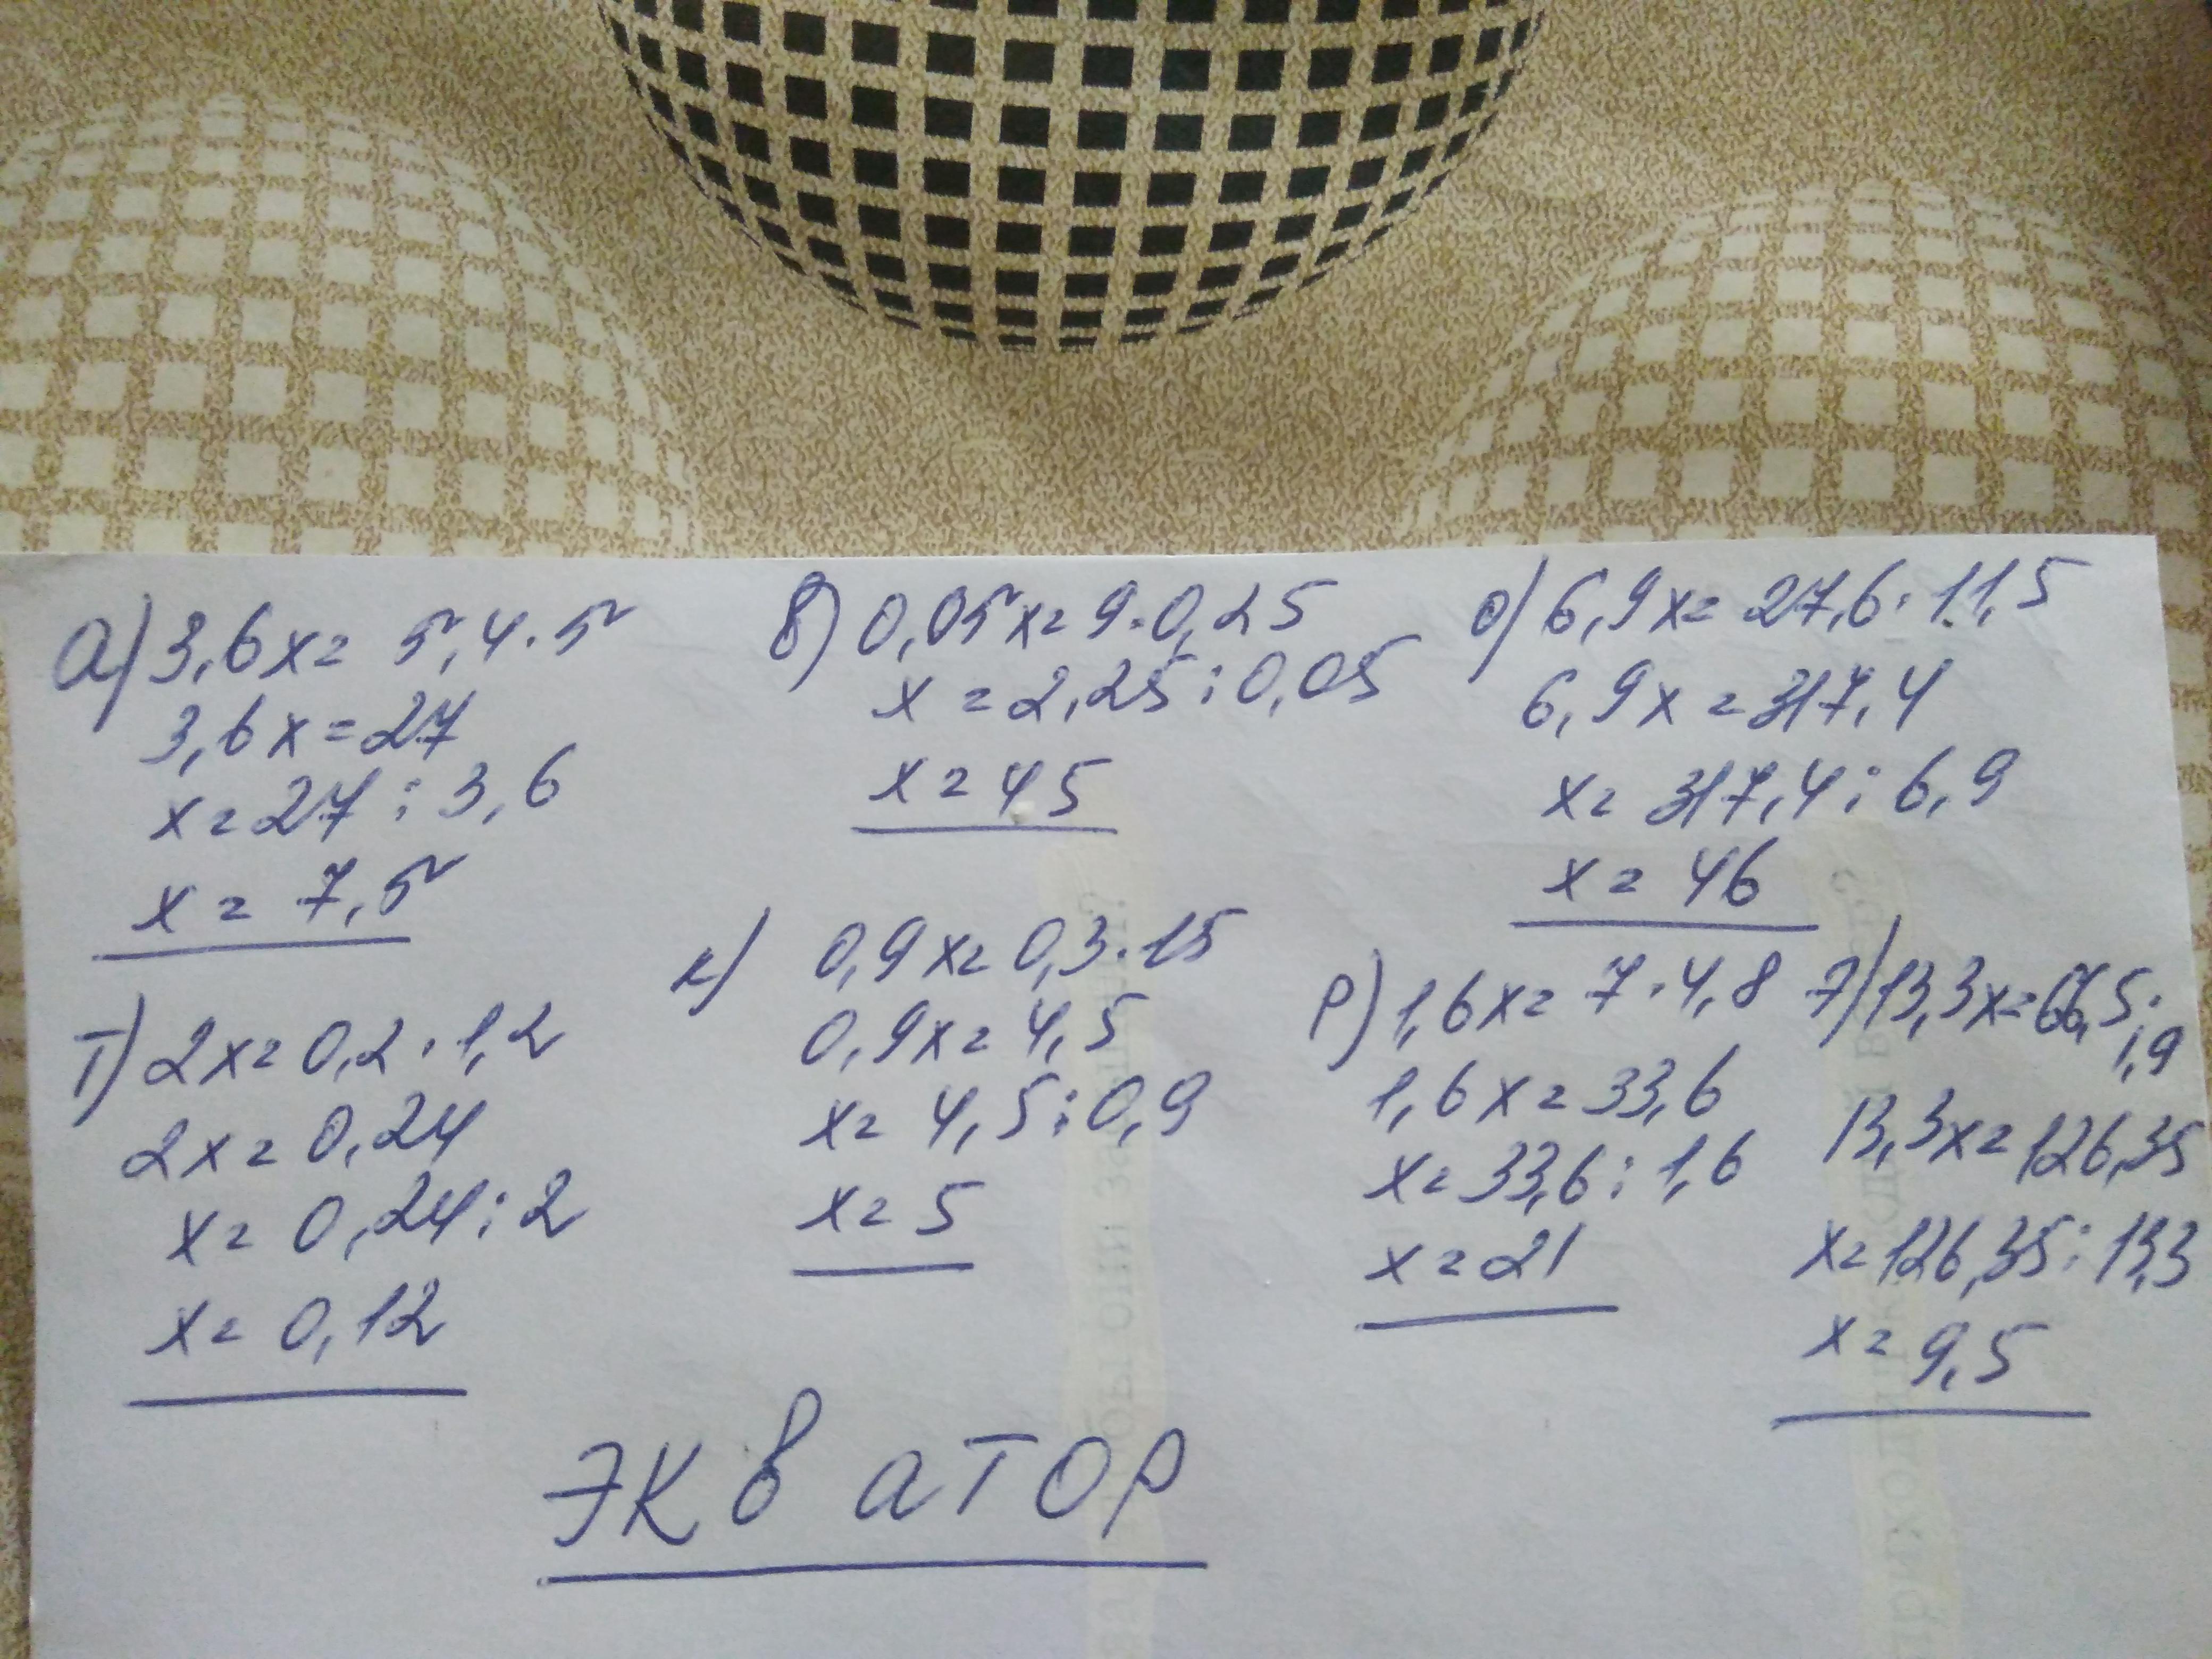 а) 3,6x = 5,4 · 5
3,6x = 27
x = 27 : 3,6
x = 7,5
в) 0,05x = 9 · 0,25
x = 2,25 : 0,05
x = 45
о) 6,9x = 27,6 · 11,5
6,9x = 317,4
x = 317,4 : 6,9
x = 46
Т) 2x = 0,2 · 1,2
2x = 0,24
x = 0,24 : 2
x = 0,12
к) 0,9x = 0,3 · 15
0,9x = 4,5
x = 4,5 : 0,9
x = 5
р) 1,6x = 7 · 4,8
1,6x = 33,6
x = 33,6 : 1,6
x = 21
Э) 13,3x = 66,5 ·
1,9
13,3x = 126,35
x = 126,35 : 13,3
x = 9,5
ЭКВаТОР